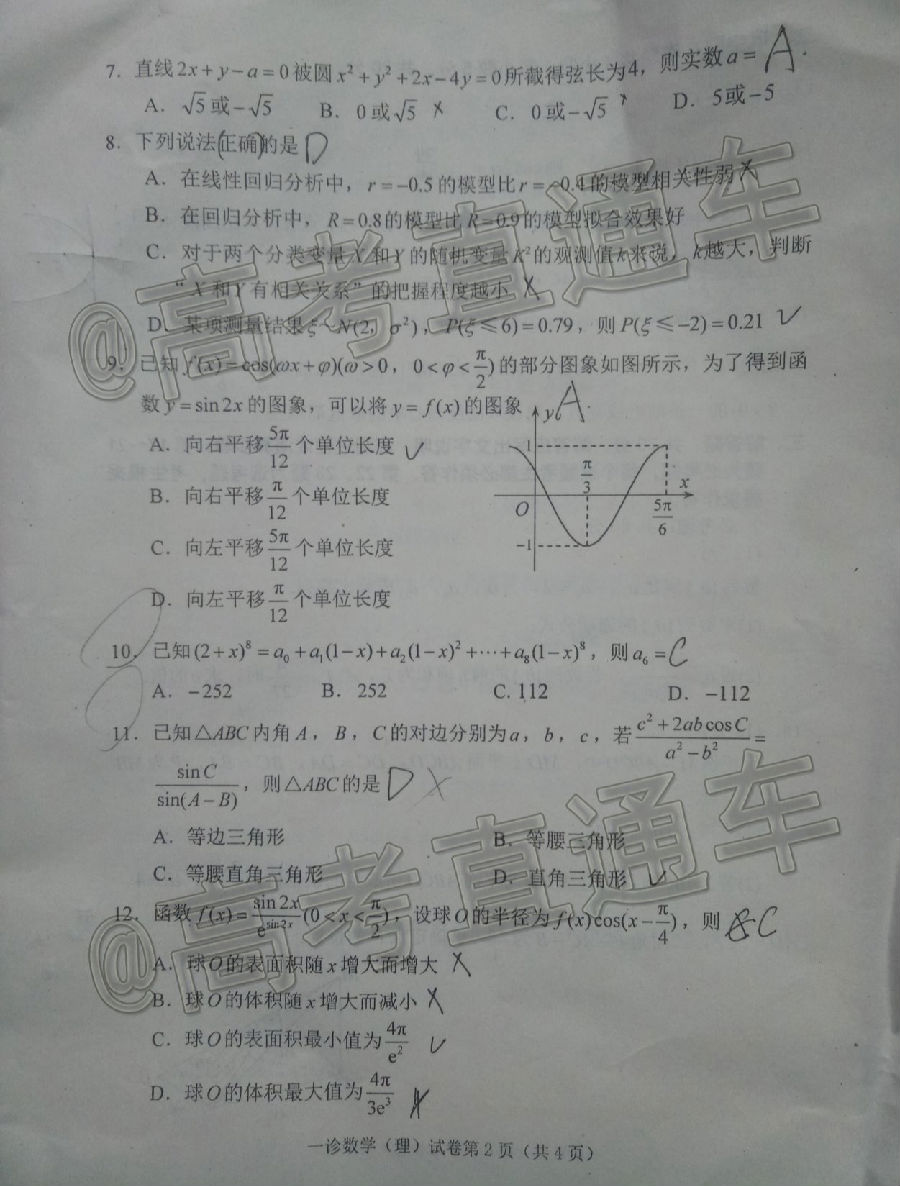 7．直线2x+y−a=0被圆x²+y²+2x−4y=0所截得弦长为4，则实数a= A .
A．√5或−√5 B．0或√5 × C．0或−√5 × D．5或−5
8．下列说法(正确)的是 D
A．在线性回归分析中，r=−0.5的模型比r=−0.4的模型相关性弱 ×
B．在回归分析中，R=0.8的模型比R=0.9的模型拟合效果好
C．对于两个分类变量X和Y的随机变量K²的观测值k来说，k越大，判断
“X和Y有相关关系”的把握程度越小 ×
D．某项测量结果ξ~N(2，σ²)，P(ξ≤6)=0.79，则P(ξ≤−2)=0.21 √
9．已知f(x)=cos(ωx+φ)(ω>0，0<φ<π/2)的部分图象如图所示，为了得到函
数y=sin2x的图象，可以将y=f(x)的图象 A
A．向右平移5π/12个单位长度 √
B．向右平移π/12个单位长度
C．向左平移5π/12个单位长度
D．向左平移π/12个单位长度
y
1
π/3
x
O
5π/6
−1
10．已知(2+x)⁸=a₀+a₁(1−x)+a₂(1−x)²+⋯+a₈(1−x)⁸，则a₆= C
A．−252 B．252 C. 112 D．−112
11．已知△ABC内角A，B，C的对边分别为a，b，c，若(c²+2abcosC)/(a²−b²)=
sinC/sin(A−B)，则△ABC的是 D ×
A．等边三角形 B．等腰三角形
C．等腰直角三角形 D．直角三角形 √
12．函数f(x)=sin2x/e^(sin2x)(0<x<π/2)，设球O的半径为f(x)cos(x−π/4)，则 C
A．球O的表面积随x增大而增大 ×
B．球O的体积随x增大而减小 ×
C．球O的表面积最小值为4π/e² √
D．球O的体积最大值为4π/3e³ ×
一诊数学（理）试卷第2页（共4页）
@高考直通车
@高考直通车